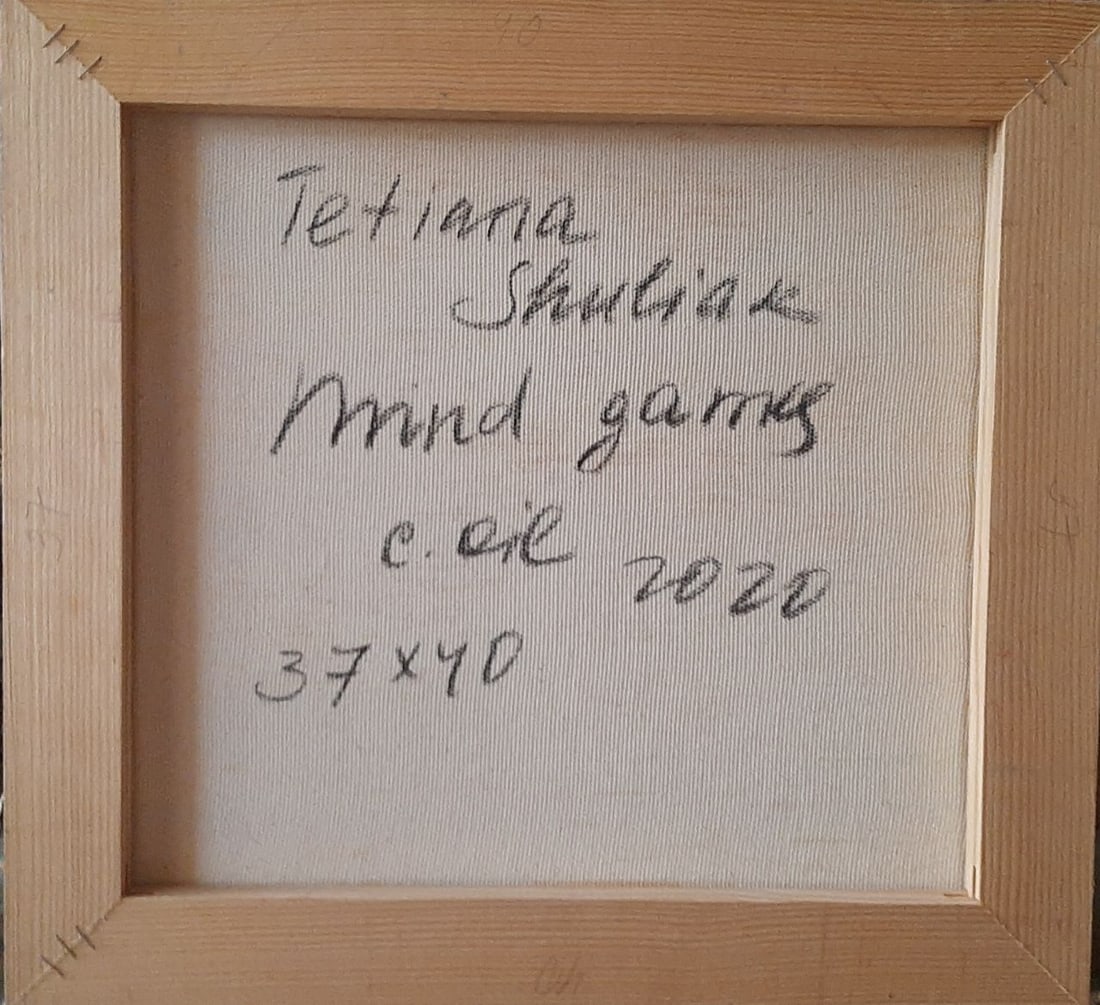 40
Tetiana
Shuliak
Mind games
c. oil 2020
37x40
37
40